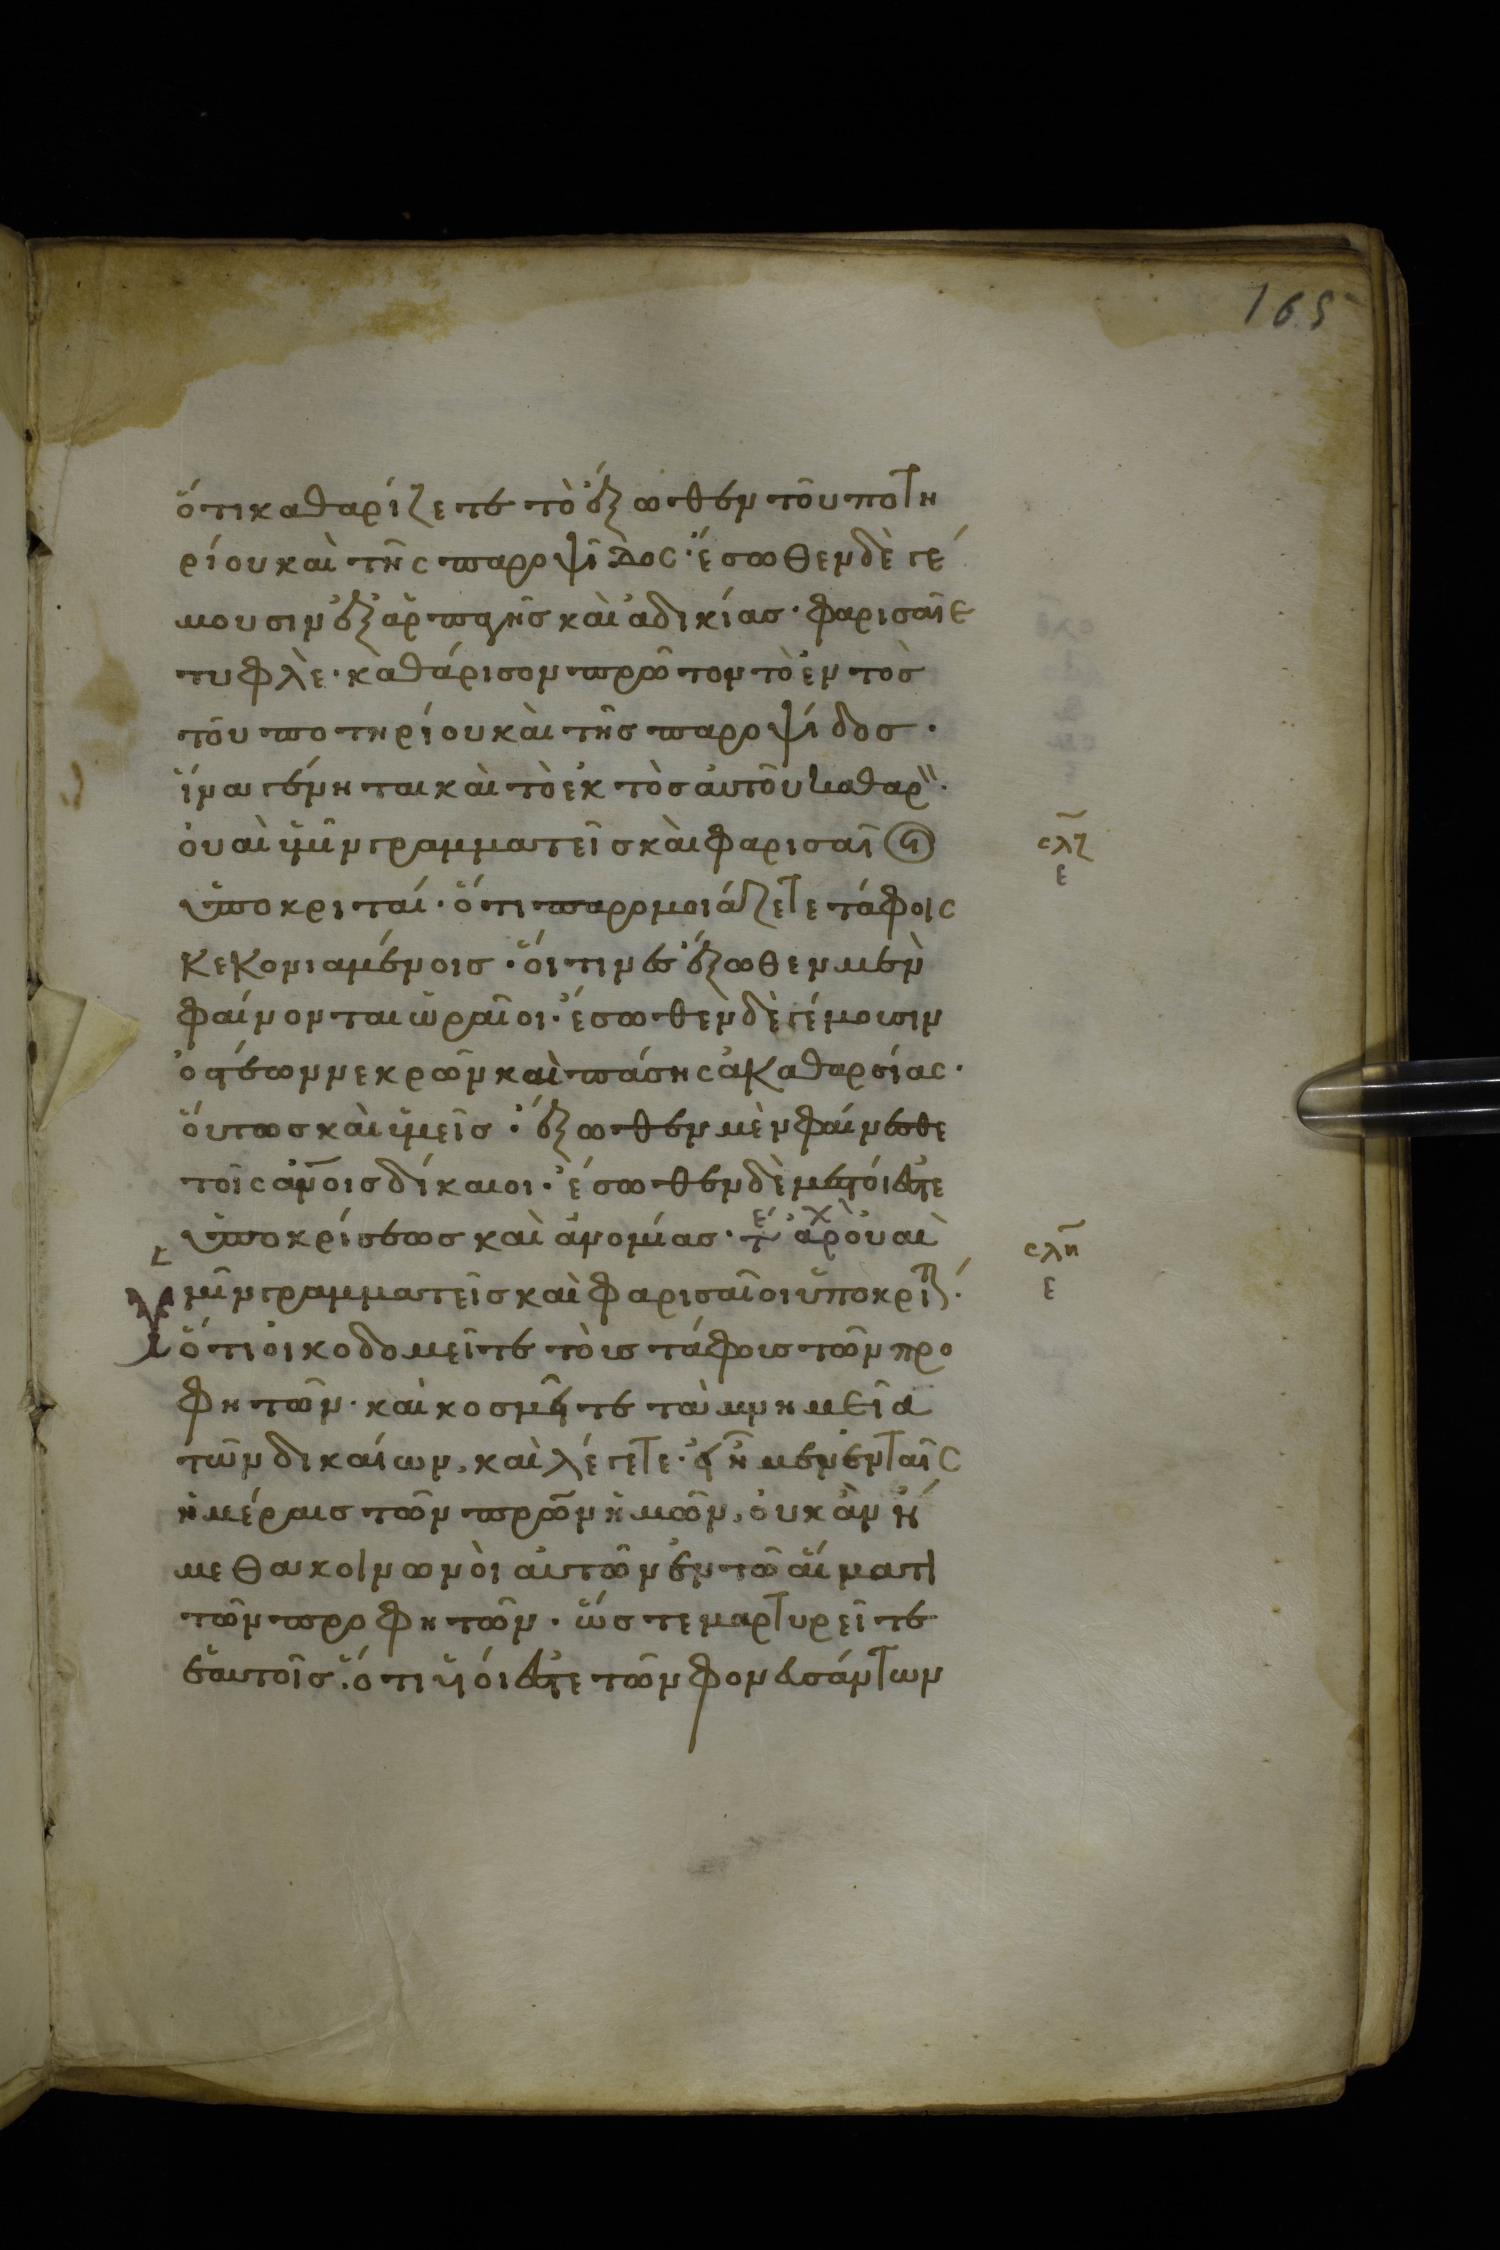 165
ὅτι καθαρίζετε τὸ ἔξωθεν τοῦ ποτη
ρίου καὶ τῆς παροψῖδος· ἔσωθεν δὲ γέ
μουσιν ἐξ ἁρπαγῆς καὶ ἀδικίας· φαρισαῖε
τυφλὲ· καθάρισον πρῶτον τὸ ἐντὸς
τοῦ ποτηρίου καὶ τῆς παροψίδος·
ἵνα γένηται καὶ τὸ ἐκτὸς αὐτοῦ καθαρ̀·
οὐαὶ ὑμῖν γραμματεῖς καὶ φαρισαῖοι
σλζ
ε
ὑποκριταί· ὅτι παρομοιάζετε τάφοις
κεκονιαμένοις· οἵτινες ἔξωθεν μὲν
φαίνονται ὡραῖοι· ἔσωθεν δὲ γέμουσιν
ὀστέων νεκρῶν καὶ πάσης ἀκαθαρσίας·
οὕτως καὶ ὑμεῖς· ἔξωθεν μὲν φαίνεσθε
τοῖς ἀν̅οις δίκαιοι· ἔσωθεν δὲ μεστοί ἐστε
ὑποκρίσεως καὶ ἀνομίας· τε ἀρχ οὐαὶ
σλη
ε
ὑμῖν γραμματεῖς καὶ φαρισαῖοι ὑποκριτ·
ὅτι οἰκοδομεῖτε τοὺς τάφους τῶν προ
φητῶν· καὶ κοσμεῖτε τὰ μνημεῖα
τῶν δικαίων, καὶ λέγετε· εἰ ἦμεν ἐν ταῖς
ἡμέραις τῶν πρ̅ων ἡμῶν, οὐκ ἂν ἤ
μεθα κοινωνοὶ αὐτῶν ἐν τῶ αἵματι
τῶν προφητῶν· ὥστε μαρτυρεῖτε
ἑαυτοῖς· ὅτι υἱοί ἐστε τῶν φονευσάντων